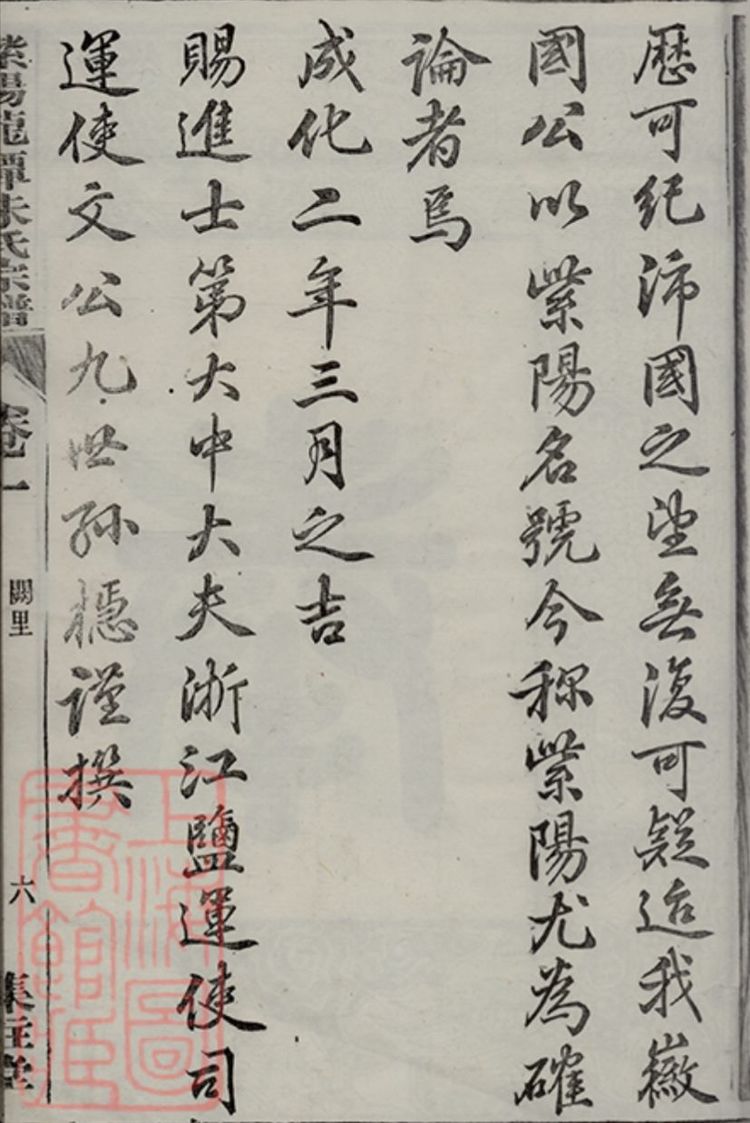 歷可紀沛國之望無復可疑迨我徽
國公以紫陽名號今称紫陽尤為確
論者焉
成化二年三月之吉
賜進士第大中大夫浙江鹽運使司
運使文公九世孫穩謹撰
紫陽龍潭朱氏宗譜
卷一
闕里
六
上海圖書館藏